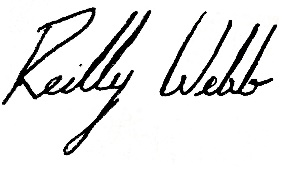 Reilly Webb